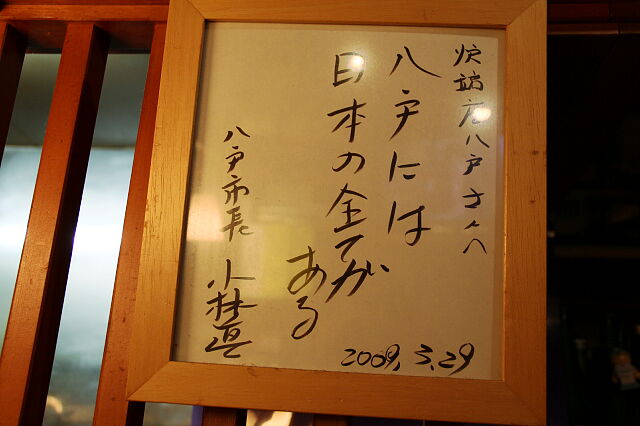 炉端店八戸さんへ
八戸には
日本の全てが
ある
八戸市長
小林眞
2009.3.29